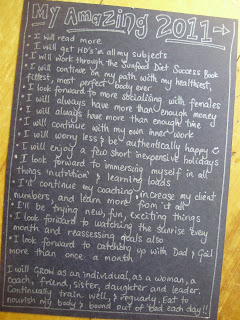 My Amazing 2011 →
• I will read more
• I will get HD's in all my subjects
• I will work through the Sunfood Diet Success Book
• I will continue on my path with my healthiest,
fittest, most perfect body ever
• I look forward to more socialising with females
• I will always have more than enough money
• I will always have more than enough time
• I will continue with my own inner work
• I will worry less & be authentically happy
• I will enjoy a few short inexpensive holidays
• I look forward to immersing myself in all
things 'nutrition' & learning loads
• I'll continue my coaching, increase my client
numbers, and learn more from it all
• I'll be trying new, fun, exciting things
• I look forward to watching the sunrise every
month and reassessing goals also
• I look forward to catching up with Dad & Gail
more than once a month
I will GROW as an individual, as a woman, a
coach, friend, sister, daughter and leader.
Continually train well, & regularly. Eat to
nourish my body & bound out of bed each day!!